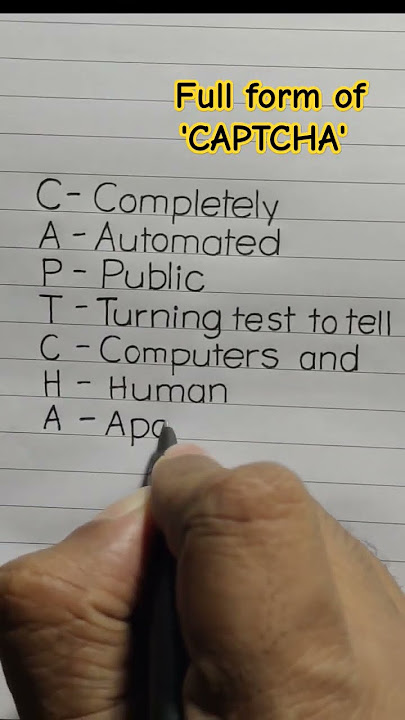 Full form of
'CAPTCHA'
C - Completely
A - Automated
P - Public
T - Turning test to tell
C - Computers and
H - Human
A - Apa